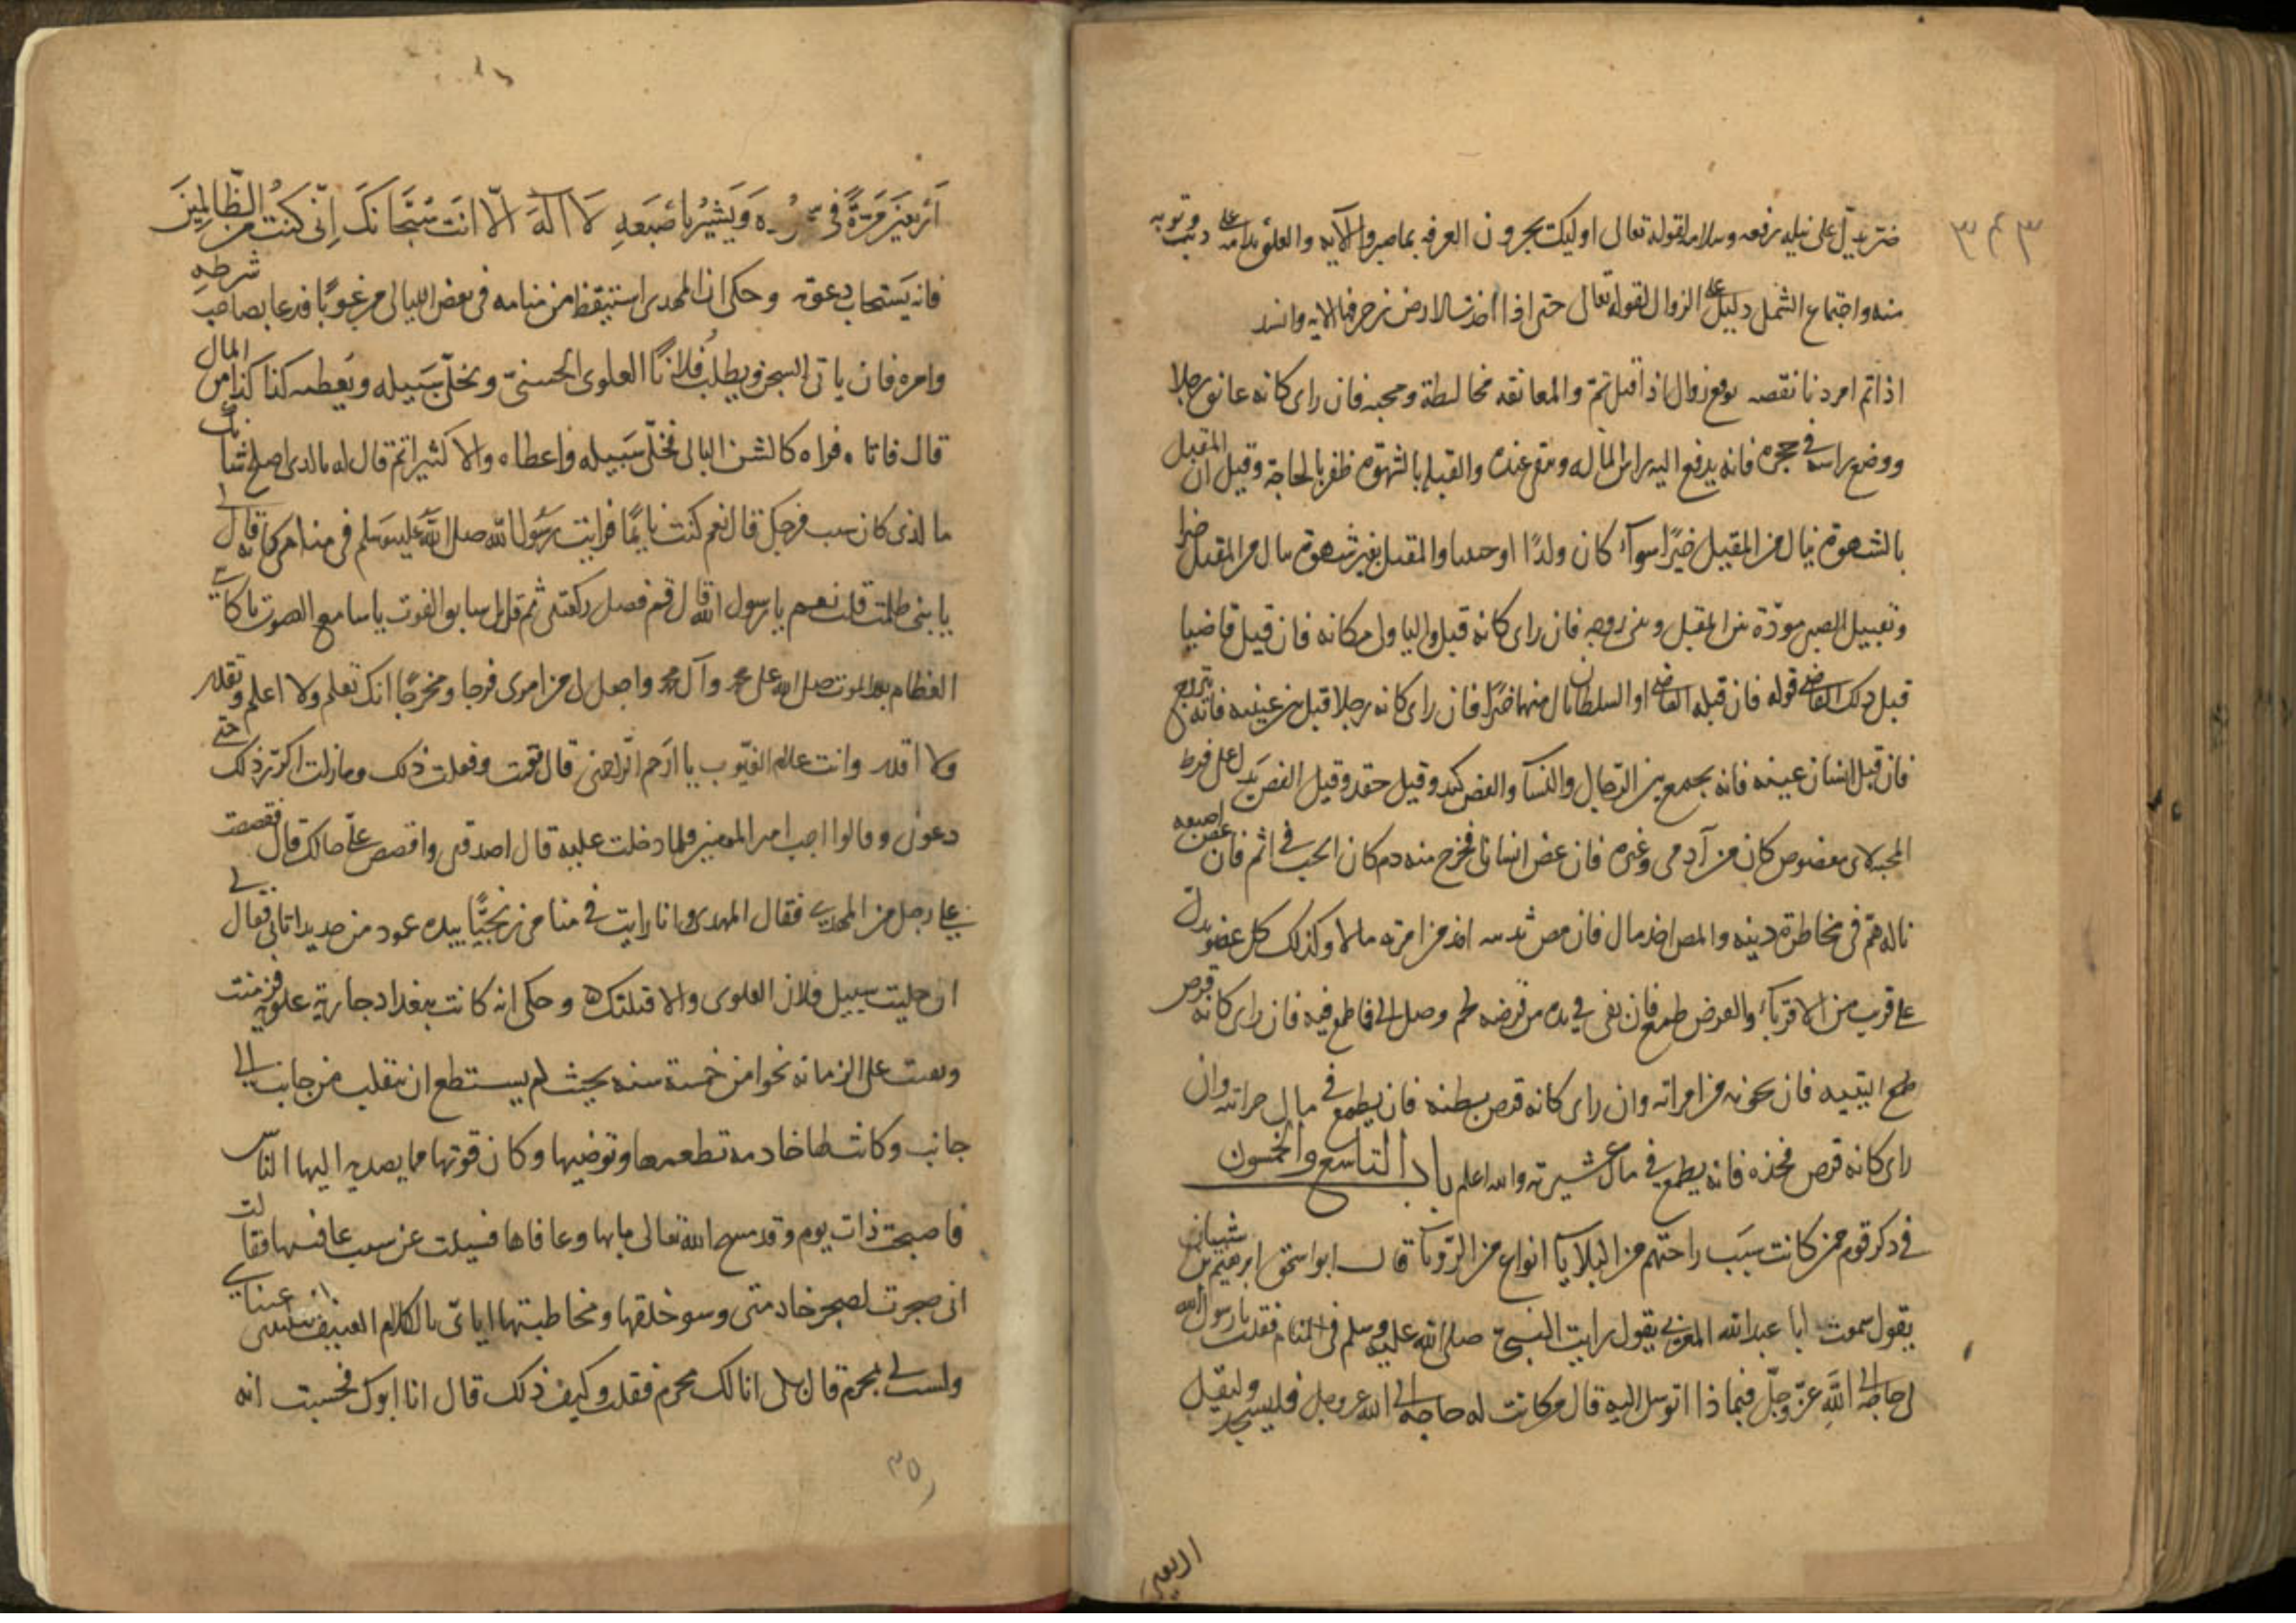 ٣٤٣
تدل على نيله رفعه وسلامه لقوله تعالى اوليك يجزون الغرفه بما صبروا الآيه والغلق ندامه على ذنب وتوبه
منه واجتماع الشمل دليل على الزوال لقوله تعالى حتى اذا اخذت الارض زخرفها الايه وانشد
اذا تم امر دنا نقصه توقع زوال اذا قيل تم والمعانقه مخالطة ومحبه فان راى كانه عانق رجلا
ووضع راسه في حجره فانه يدفع اليه راس ماله ويبقى عنده والقبله بالشهوة ظفر بالحاجة وقيل ان المقبل
بالشهوة ينال من المقبل خيرًا سواء كان ولدًا او حبيبا والمقبل بغير شهوة ينال من المقبل خيرا
وتقبيل الصبي مودّة بين المقبل وبين زوجه فان راى كانه قبل واليا ولى مكانه فان قبل قاضيا
قبل ذلك القاضي قوله فان قبله القاضي او السلطان نال منهما خيرًا فان راى كانه رجلا قبل بين عينيه فانه يتزوج
فان قبل انسان عينه فانه يجمع بين الرجال والنسآ والعض كيد وقيل حقد وقيل العض يدل على فرط
المحبه لاى معضوض كان من آدمى وغيره فان عض انسانا فخرج منه دم كان الحب في اثم فان عض اصبعه
ناله همّ في مخاطرة دينه والمص اخذ مال فان مص ثديه اخذ من امرته مالا وكذلك كل عضو يدل
على قريب من الاقرباء والقرض طمع فان بقى في يده من قرضه لحم وصل الى ما طمع فيه فان راى كانه قرص
طمع اليتيه فان يخونه من امراته وان راى كانه قرص بطنه فان يطمع في مال خزانته وان
راى كانه قرص فخذه فانه يطمع في مال عشيرته والله اعلم باب التاسع والخمسون
في ذكر قوم ممن كانت سبب راحتهم من البلايا انواع من الرّويا قال ابو اسحق ابرهيم بن شيبان
يقول سمعت ابا عبد الله المغربي يقول رايت النبيّ صلى الله عليه وسلم في المنام فقلت يا رسول الله
لى حاجة الى اللهِ عزّ وجلّ فبماذا اتوسل اليه قال من كانت له حاجة الى الله عز وجل فليسجد وليقل
اربعين
اَربعينَ مَرَّةً فى وَيَشيُر بِاصْبَعِهِ لَا اِلَهَ الّا انتَ سُبْحَانَكَ اِنّى كنتُ من الظّالِمينَ
فانه يَستجاب دعوته وحكى ان المهدى استيقظ من منامه فى بعض الليالى مرعوبًا فدعا بصاحب شرطه
وامره فان ياتى السجن ويطلب فلانًا العلوى الحسنىّ ويخلّى سَبيله ويُعطيه كذا كذا من المال
قال فاتاه فراه كالشن البالى فخلّى سَبيله واعطاه والا كثيرا ثم قال له بالذى اصلح شانك
ما الذى كان سبب فرجك قال نعم كنت نايمًا فرايت رسُول الله صلى الله عليه وسلم فى منامى كانه قال
يا بنى ظلمت قلت نعم يا رسول الله قال قم فصل ركعتين ثم قل يا سابق الفوت يا سامع الصوت يا كاسي
العظام بعد الموت صل الله على محمد وآل محمد واجعل لى من امرى فرجا ومخرجًا انك تعلم ولا اعلم وتقدر
ولا اقدر وانت علام الغيّوب يا ارحم الراحمين قال فقمت وفعلت ذلك وما زلت اكرّر ذلك حتى
دعونى وقالوا اجب امير المومنين فلما دخلت عليه قال اصدقنى واقصص علىّ حالك قال فقصصت
على رجل من المهدي فقال المهدى وانا رايت في منامى زنجيًّا بيده عمود من حديد اتانى فقال لى
ان خليت سبيل فلان العلوى والا قتلتك وحكى انه كانت ببغداد جارية علويّه فزمنت
وبقيت على الزمانة نحوا من خمسة سنه بحيث لم يستطع ان تنقلب من جانب الى
جانب وكانت لها خادمه تطعمها وتوضيها وكان قوتها مما يصدق اليها الناس
فاصبحت ذات يوم وقد مسح الله تعالى ما بها وعافاها فسيلت عن سبب عافيتها فقالت
انى ضجرت لضجر خادمتى وسو خلقها ومخاطبتها اياىّ بالكلام العنيف
ولست لى بمحرم قال بلى انا لك محرم فقلت وكيف ذلك قال انا ابوك فحسبت انه